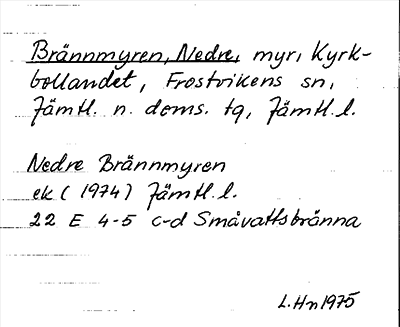 Brännmyren, Nedre, myr, Kyrk-
bollandet, Frostvikens sn,
Jämtl. n. doms. tg, Jämtl. l.
Nedre Brännmyren
ek (1974) Jämtl. l.
22 E 4-5 c-d Småvattsbränna
L. Hn 1975